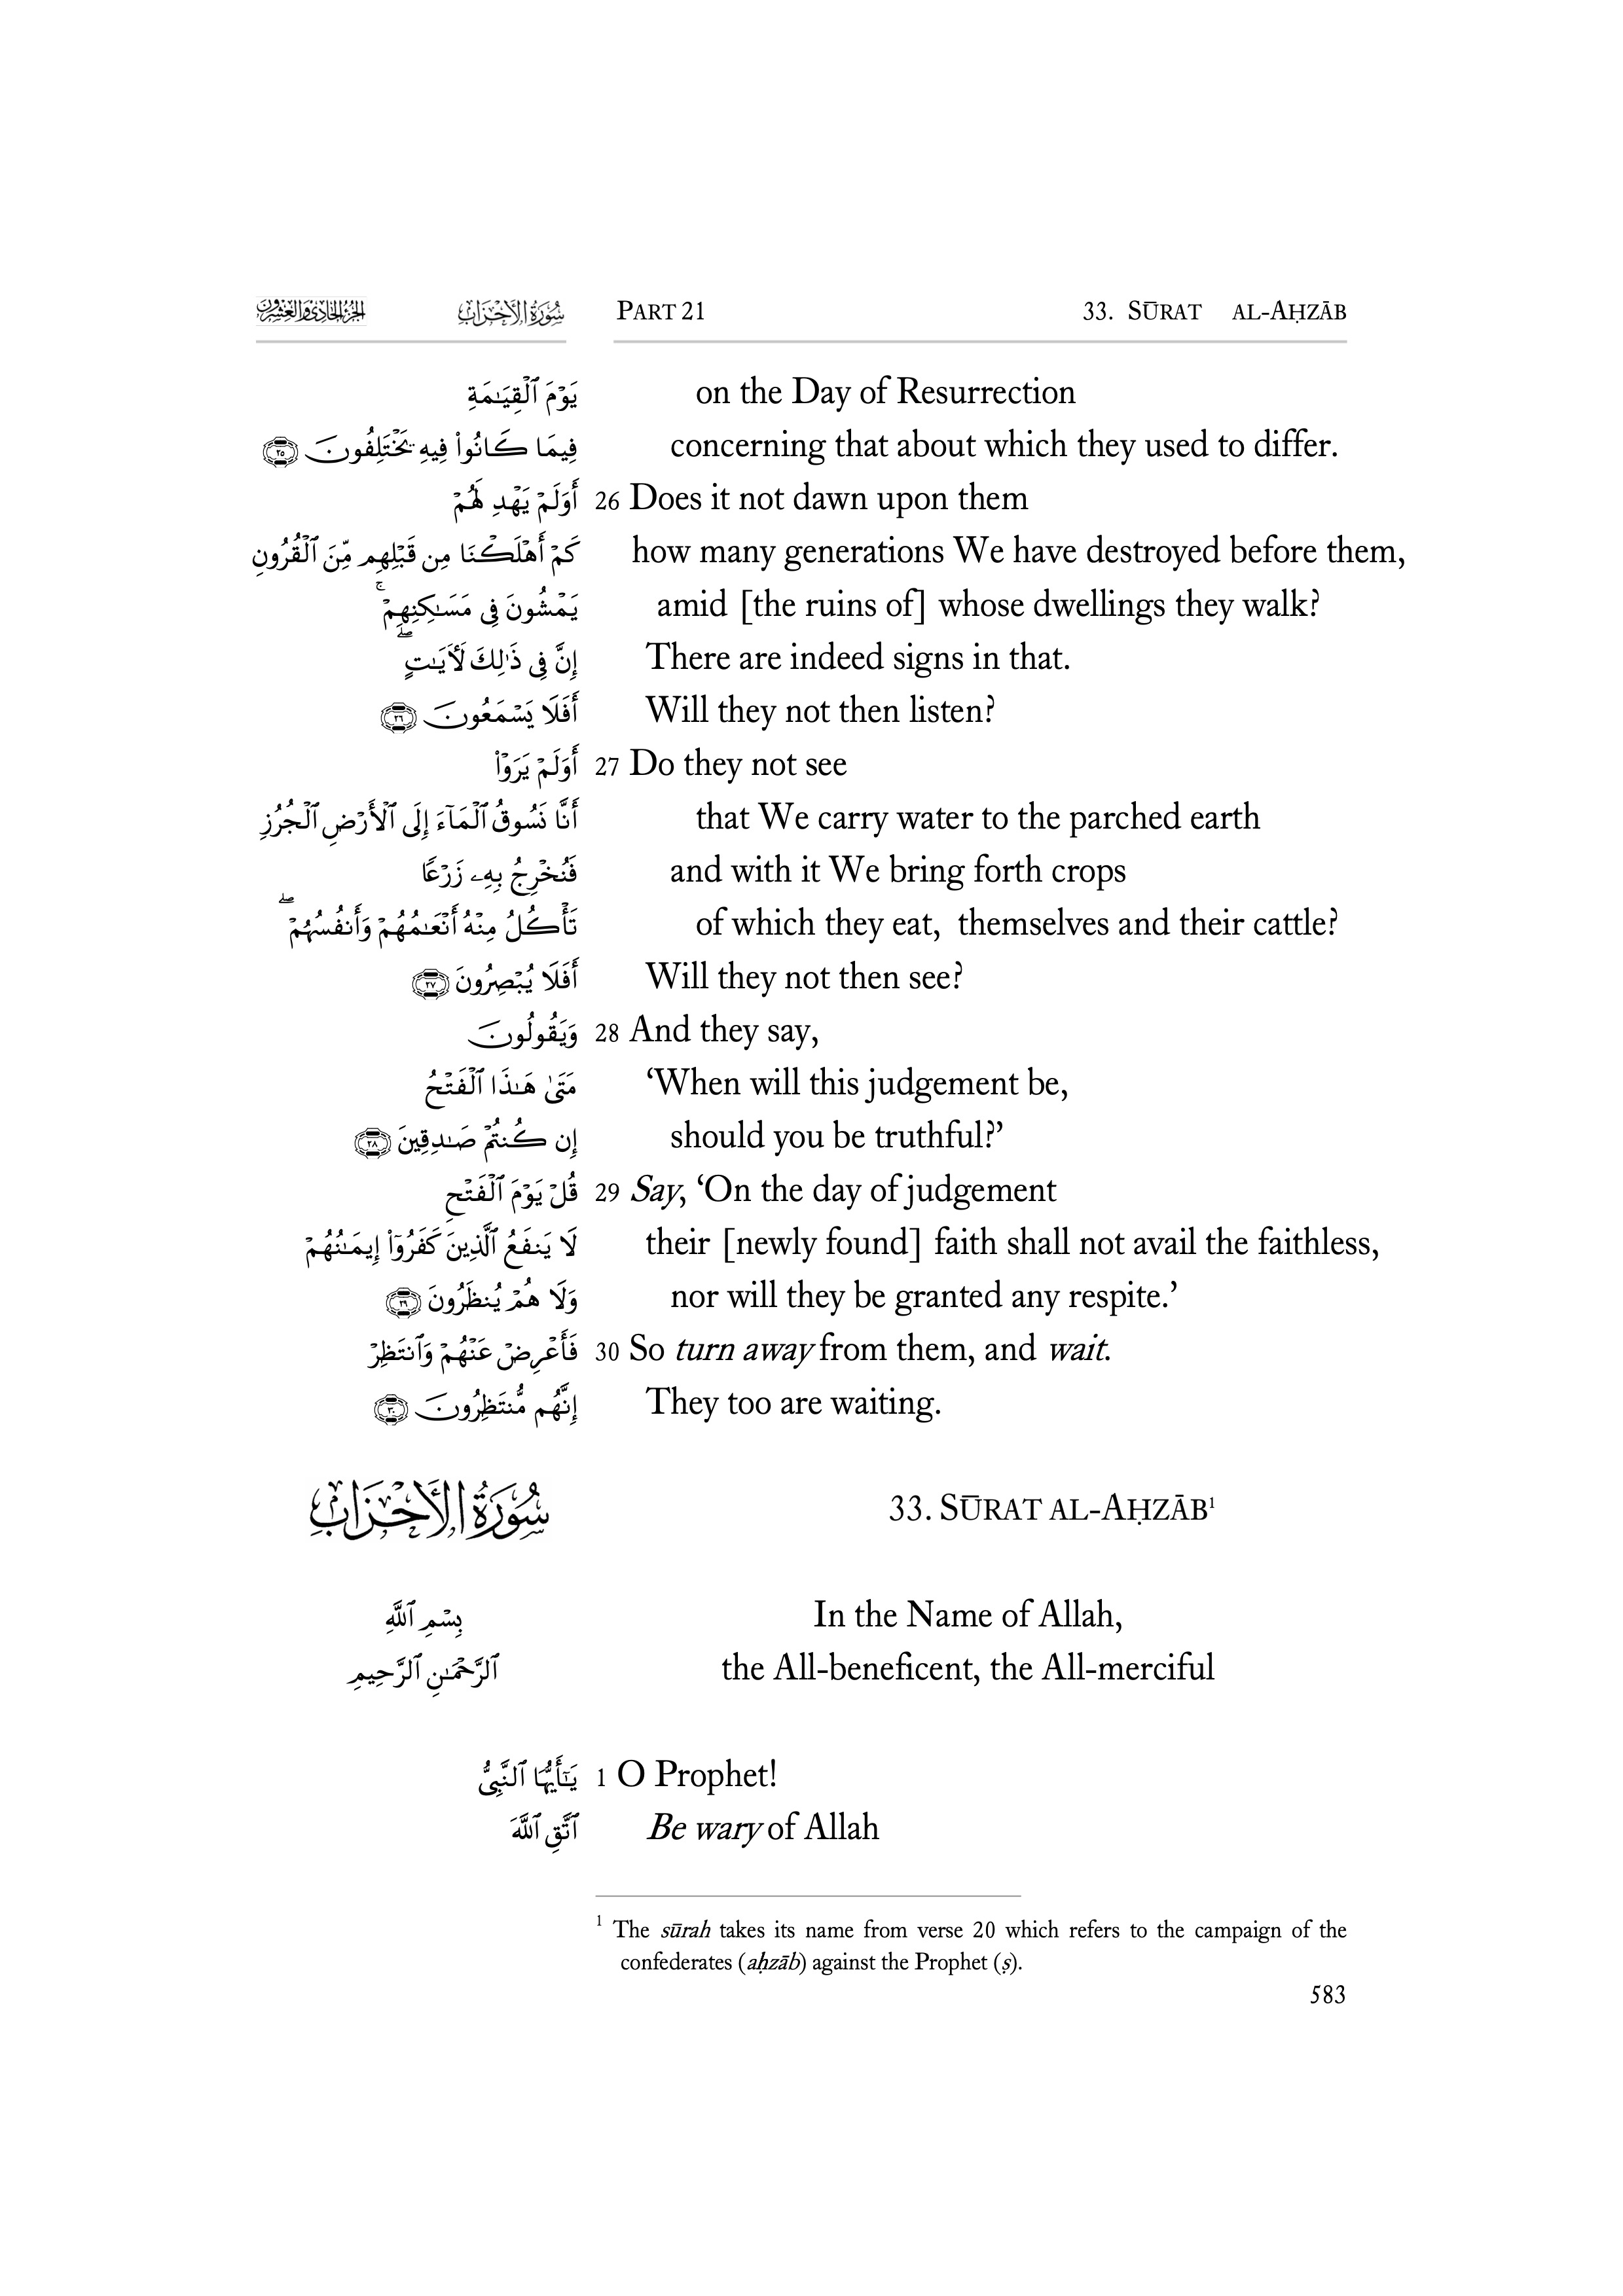 الجزء الحادي والعشرون سُورَةُ الأَحْزَابِ PART 21 33. SŪRAT AL-AḤZĀB
يَوْمَ ٱلْقِيَـٰمَةِ on the Day of Resurrection
فِيمَا كَانُوا۟ فِيهِ يَخْتَلِفُونَ ٢٥ concerning that about which they used to differ.
أَوَلَمْ يَهْدِ لَهُمْ 26 Does it not dawn upon them
كَمْ أَهْلَكْنَا مِن قَبْلِهِم مِّنَ ٱلْقُرُونِ how many generations We have destroyed before them,
يَمْشُونَ فِى مَسَـٰكِنِهِمْ ۚ amid [the ruins of] whose dwellings they walk?
إِنَّ فِى ذَٰلِكَ لَـَٔايَـٰتٍ ۖ There are indeed signs in that.
أَفَلَا يَسْمَعُونَ ٢٦ Will they not then listen?
أَوَلَمْ يَرَوْا۟ 27 Do they not see
أَنَّا نَسُوقُ ٱلْمَآءَ إِلَى ٱلْأَرْضِ ٱلْجُرُزِ that We carry water to the parched earth
فَنُخْرِجُ بِهِۦ زَرْعًا and with it We bring forth crops
تَأْكُلُ مِنْهُ أَنْعَـٰمُهُمْ وَأَنفُسُهُمْ ۖ of which they eat, themselves and their cattle?
أَفَلَا يُبْصِرُونَ ٢٧ Will they not then see?
وَيَقُولُونَ 28 And they say,
مَتَىٰ هَـٰذَا ٱلْفَتْحُ ‘When will this judgement be,
إِن كُنتُمْ صَـٰدِقِينَ ٢٨ should you be truthful?’
قُلْ يَوْمَ ٱلْفَتْحِ 29 Say, ‘On the day of judgement
لَا يَنفَعُ ٱلَّذِينَ كَفَرُوٓا۟ إِيمَـٰنُهُمْ their [newly found] faith shall not avail the faithless,
وَلَا هُمْ يُنظَرُونَ ٢٩ nor will they be granted any respite.’
فَأَعْرِضْ عَنْهُمْ وَٱنتَظِرْ 30 So turn away from them, and wait.
إِنَّهُم مُّنتَظِرُونَ ٣٠ They too are waiting.
سُورَةُ الأَحْزَابِ 33. SŪRAT AL-AḤZĀB¹
بِسْمِ ٱللَّهِ In the Name of Allah,
ٱلرَّحْمَـٰنِ ٱلرَّحِيمِ the All-beneficent, the All-merciful
يَـٰٓأَيُّهَا ٱلنَّبِىُّ 1 O Prophet!
ٱتَّقِ ٱللَّهَ Be wary of Allah
¹ The sūrah takes its name from verse 20 which refers to the campaign of the
confederates (aḥzāb) against the Prophet (ṣ).
583